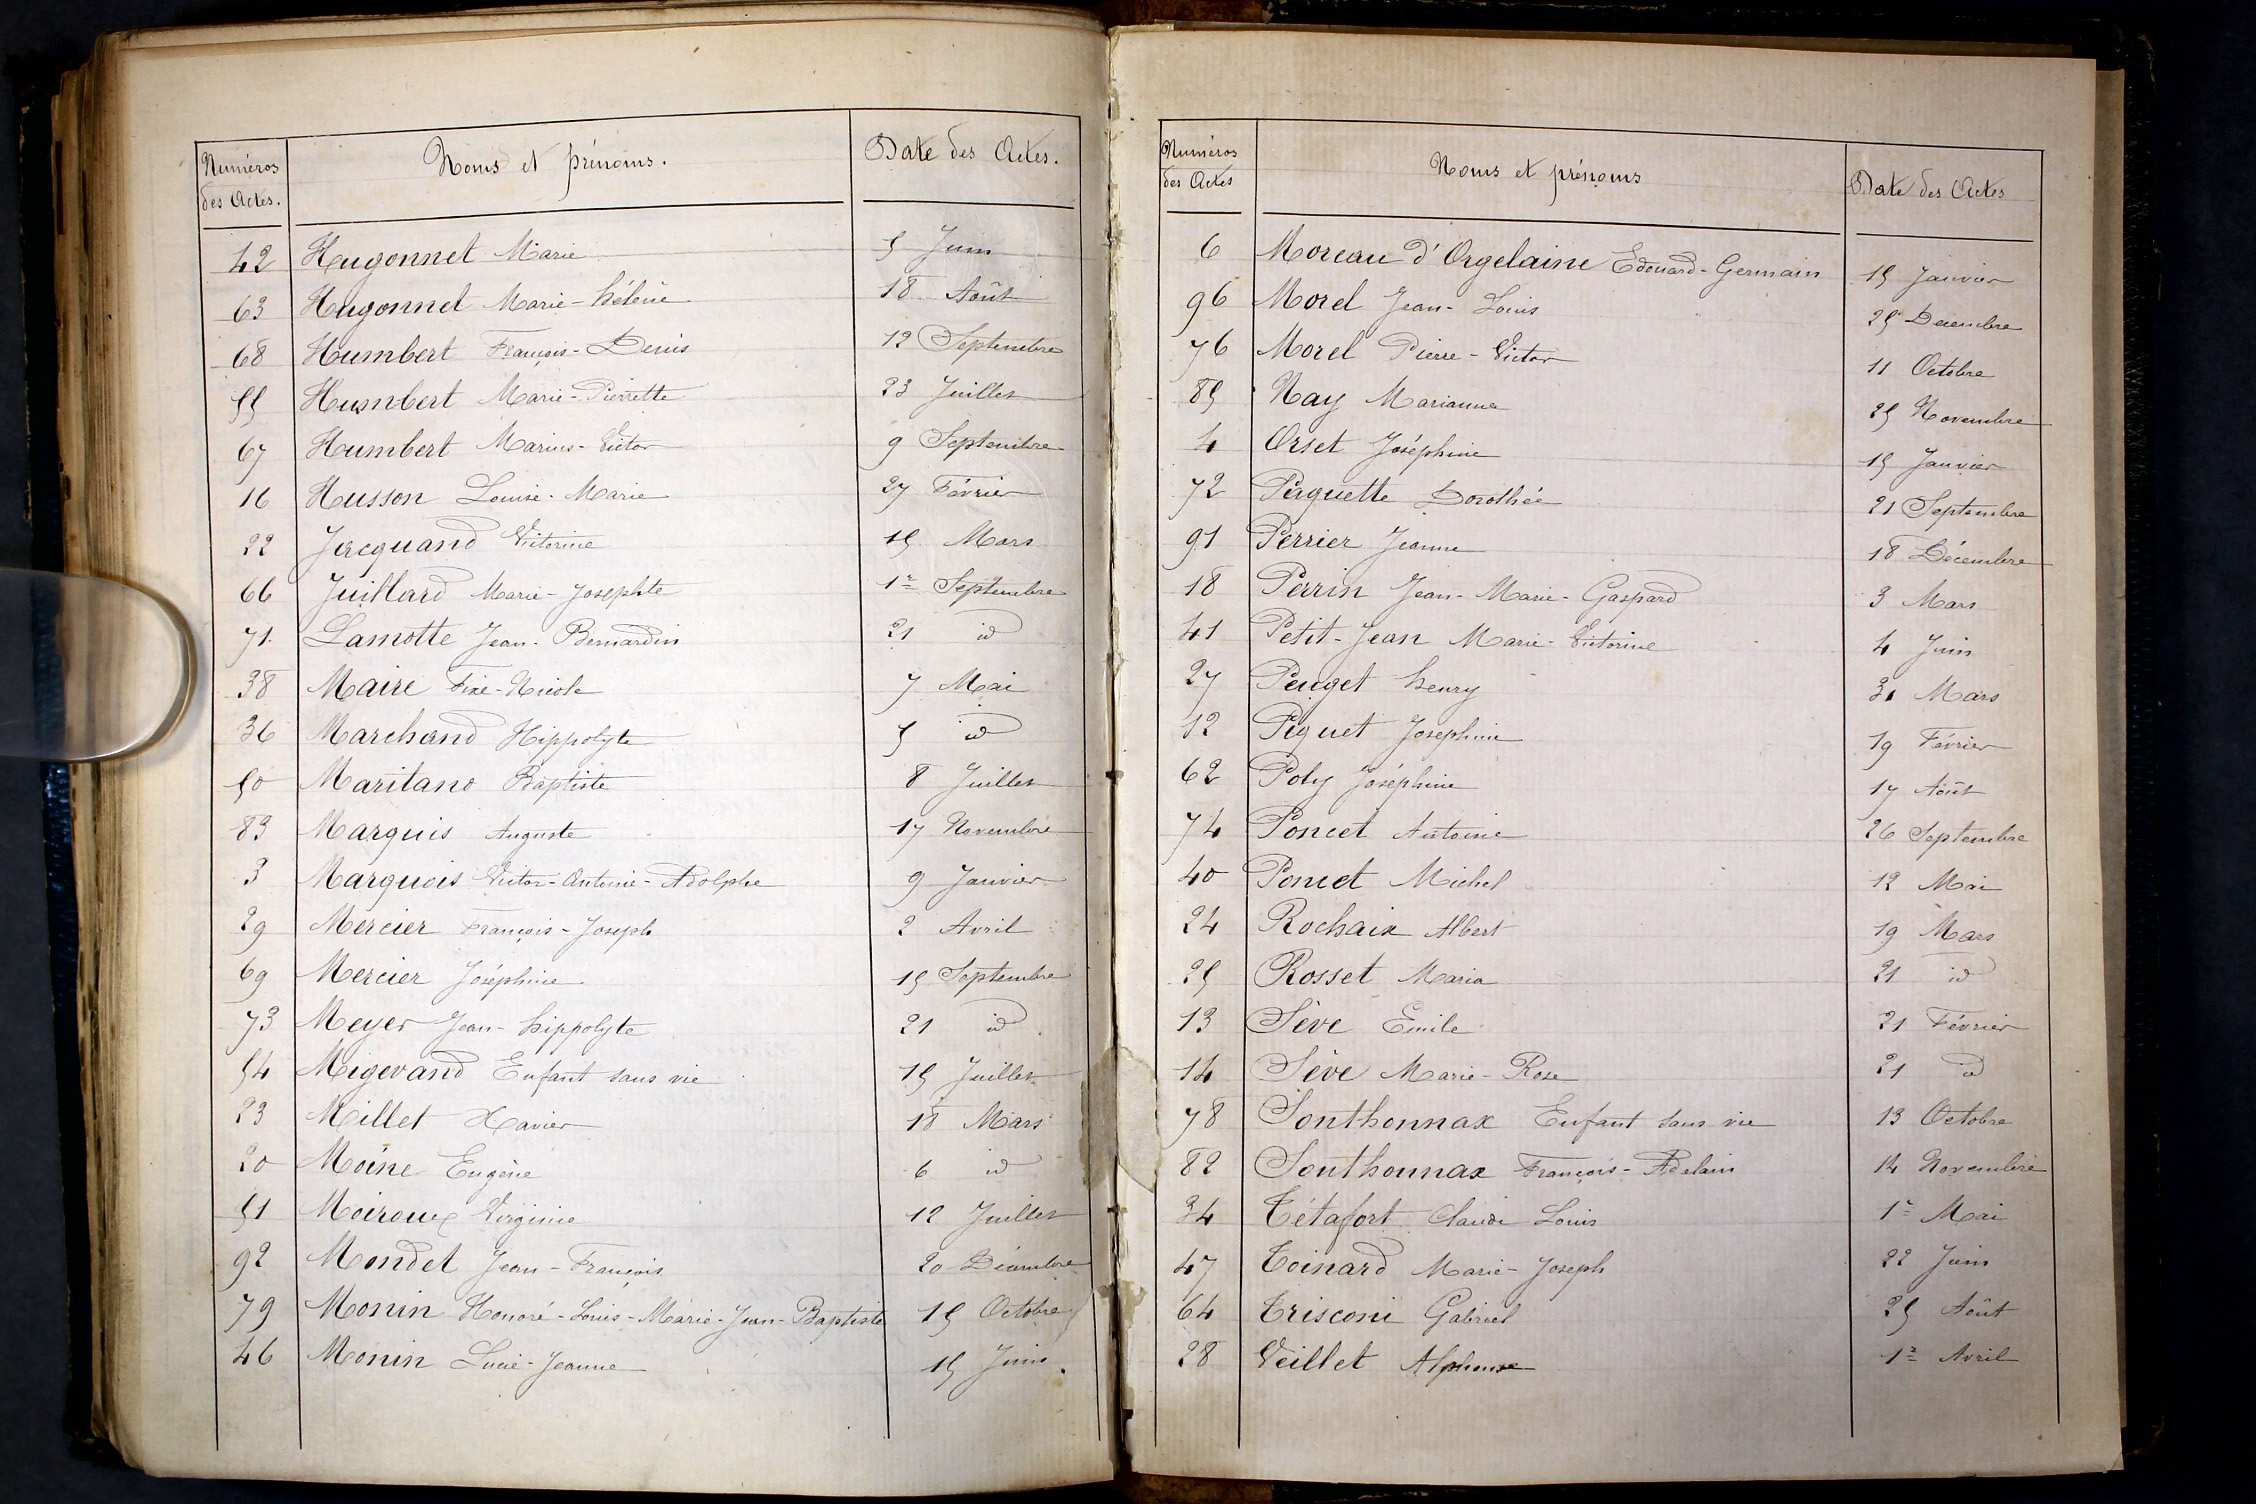 Numéros des Actes. Noms et prénoms. Date des Actes.
42 Hugonnet Marie 5 Juin
63 Hugonnet Marie-hélène 18 Août
68 Humbert François-Denis 12 Septembre
55 Humbert Marie-Pierrette 23 Juillet
67 Humbert Marius-Victor 9 Septembre
16 Husson Louise-Marie 27 Février
22 Jacquand Victorine 15 Mars
66 Juillard Marie-Josephte 1r Septembre
71. Lamotte Jean-Bernardin 21 id
38 Maire Fixe-Nicole 7 Mai
36 Marchand Hippolyte 5 id
50 Maritano Baptiste 8 Juillet
83 Marquis Auguste 17 Novembre
3 Marquois Victor-Antonie-Adolphe 9 Janvier
29 Mercier François-Joseph 2 Avril
69 Mercier Joséphine 15 Septembre
73 Meyer Jean-hippolyte 21 id
54 Migevand Enfant sans vie 15 Juillet
23 Millet Xavier 18 Mars
20 Moine Eugène 6 id
51 Moiroux Virginie 12 Juillet
92 Mondet Jean-François 20 Décembre
79 Monin Honoré-Louis-Marie-Jean-Baptiste 15 Octobre
46 Monin Lucie-Jeanne 15 Juin.
Numéros des Actes Noms et prénoms Date des Actes
6 Moreau d'Orgelaine Edouard-Germain 15 Janvier
96 Morel Jean-Louis 25 Décembre
76 Morel Pierre-Victor 11 Octobre
85 Nay Marianne 25 Novembre
4 Orset Joséphine 15 Janvier
72 Paquette Dorothée 21 Septembre
91 Perrier Jeanne 18 Décembre
18 Perrin Jean-Marie-Gaspard 3 Mars
41 Petit-Jean Marie-Victorine 4 Juin
27 Peuget henry 31 Mars
12 Piquet Josephine 19 Février
62 Poly Joséphine 17 Août
74 Poncet Antoine 26 Septembre
40 Poncet Michel 12 Mai
24 Rochaix Albert 19 Mars
25 Rosset Maria 21 id
13 Sève Emile 21 Février
14 Sève Marie-Rose 21 id
78 Sonthonnax Enfant sans vie 13 Octobre
82 Sonthonnax François-Adelain 14 Novembre
34 Tétafort Claude Louis 1r Mai
47 Toinard Marie-Joseph 22 Juin
64 Trisconi Gabriel 25 Août
28 Veillet Alphonse 1r Avril